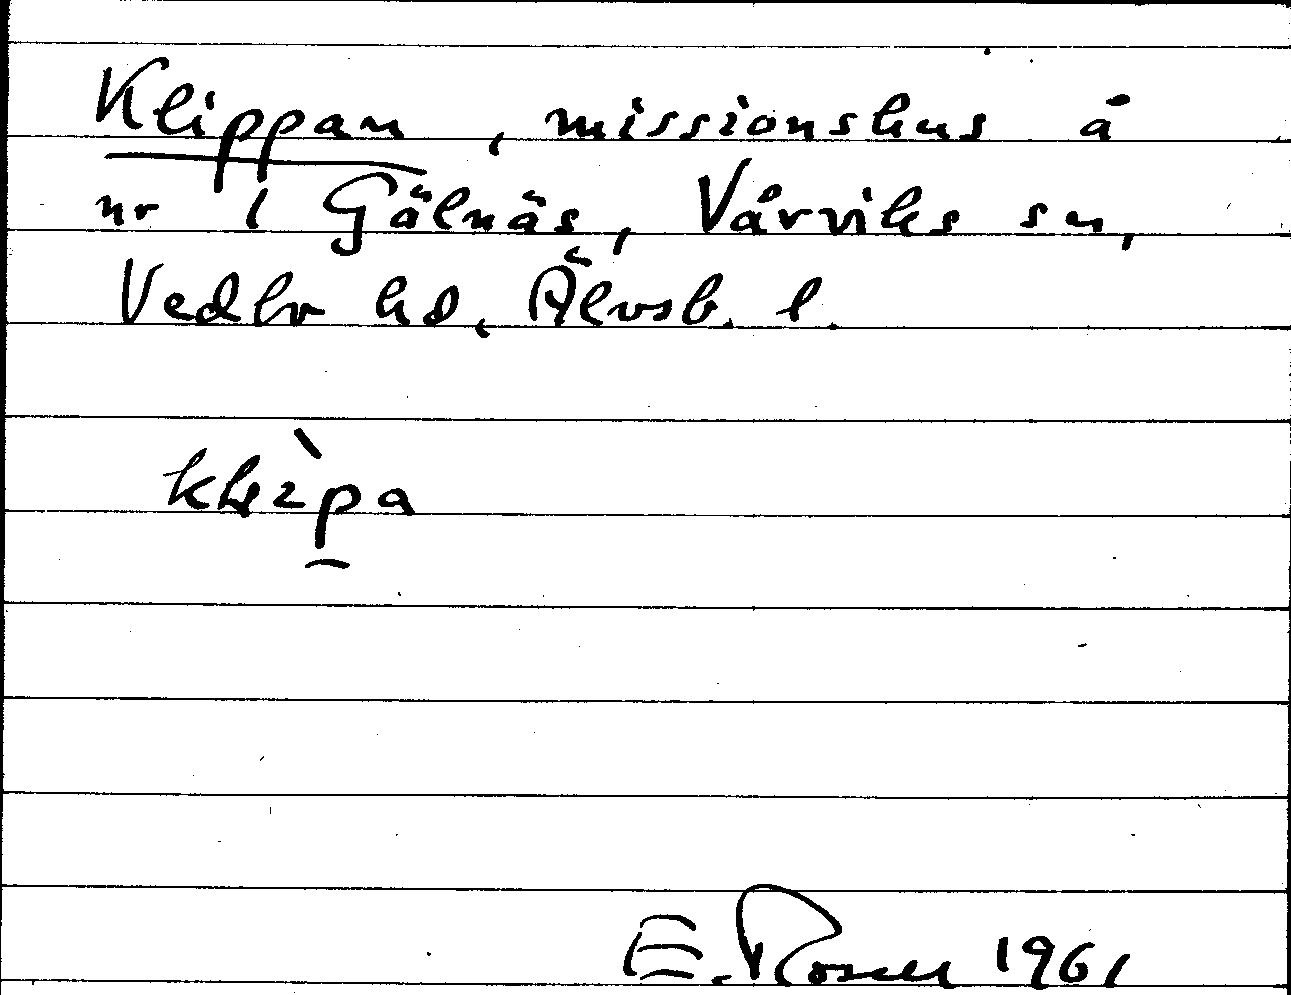 Klippan, missionshus å
nr 1 Gälnäs, Vårviks sn,
Vedbo hd, Älvsb. l.
klìpa
E. Rosell 1961